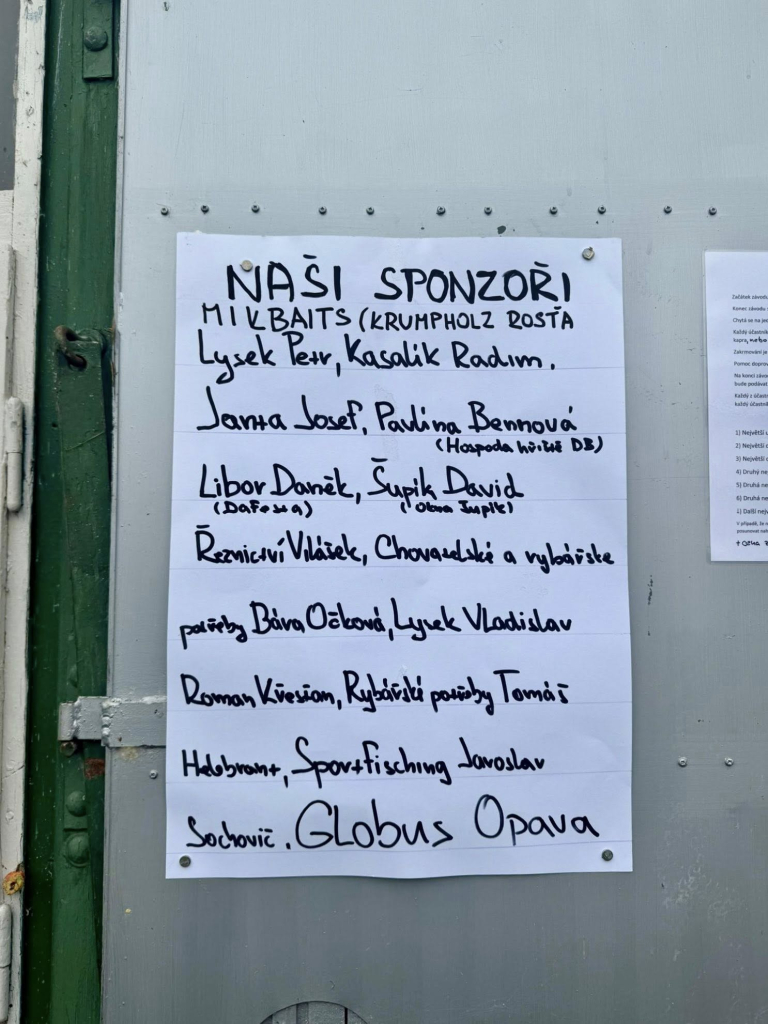 NAŠI SPONZOŘI
MIKBAITS (KRUMPHOLZ ROSŤA
Lysek Petr, Kasalík Radim.
Janta Josef, Pavlína Bennová
(Hospoda hřiště DB)
Libor Daněk, Šupík David
(Dařesa) (Obra Šupík)
Řeznictví Vilášek, Chovatelské a rybářske
potřeby Bára Očková, Lysek Vladislav
Roman Křesťan, Rybářské potřeby Tomáš
Helebrant, Sportfisching Jaroslav
Sochovič. Globus Opava
Začátek závodu
Konec závodu
Chytá se na jed
Každý účastník
kapra, nebo
Zakrmování je
Pomoc doprov
Na konci závo
bude podávat
Každý z účast
každý účastní
1) Největší u
2) Největší
3) Největší
4) Druhý ne
5) Druhá ne
6) Druhá ne
Další nejv
V případě, že
posunovat